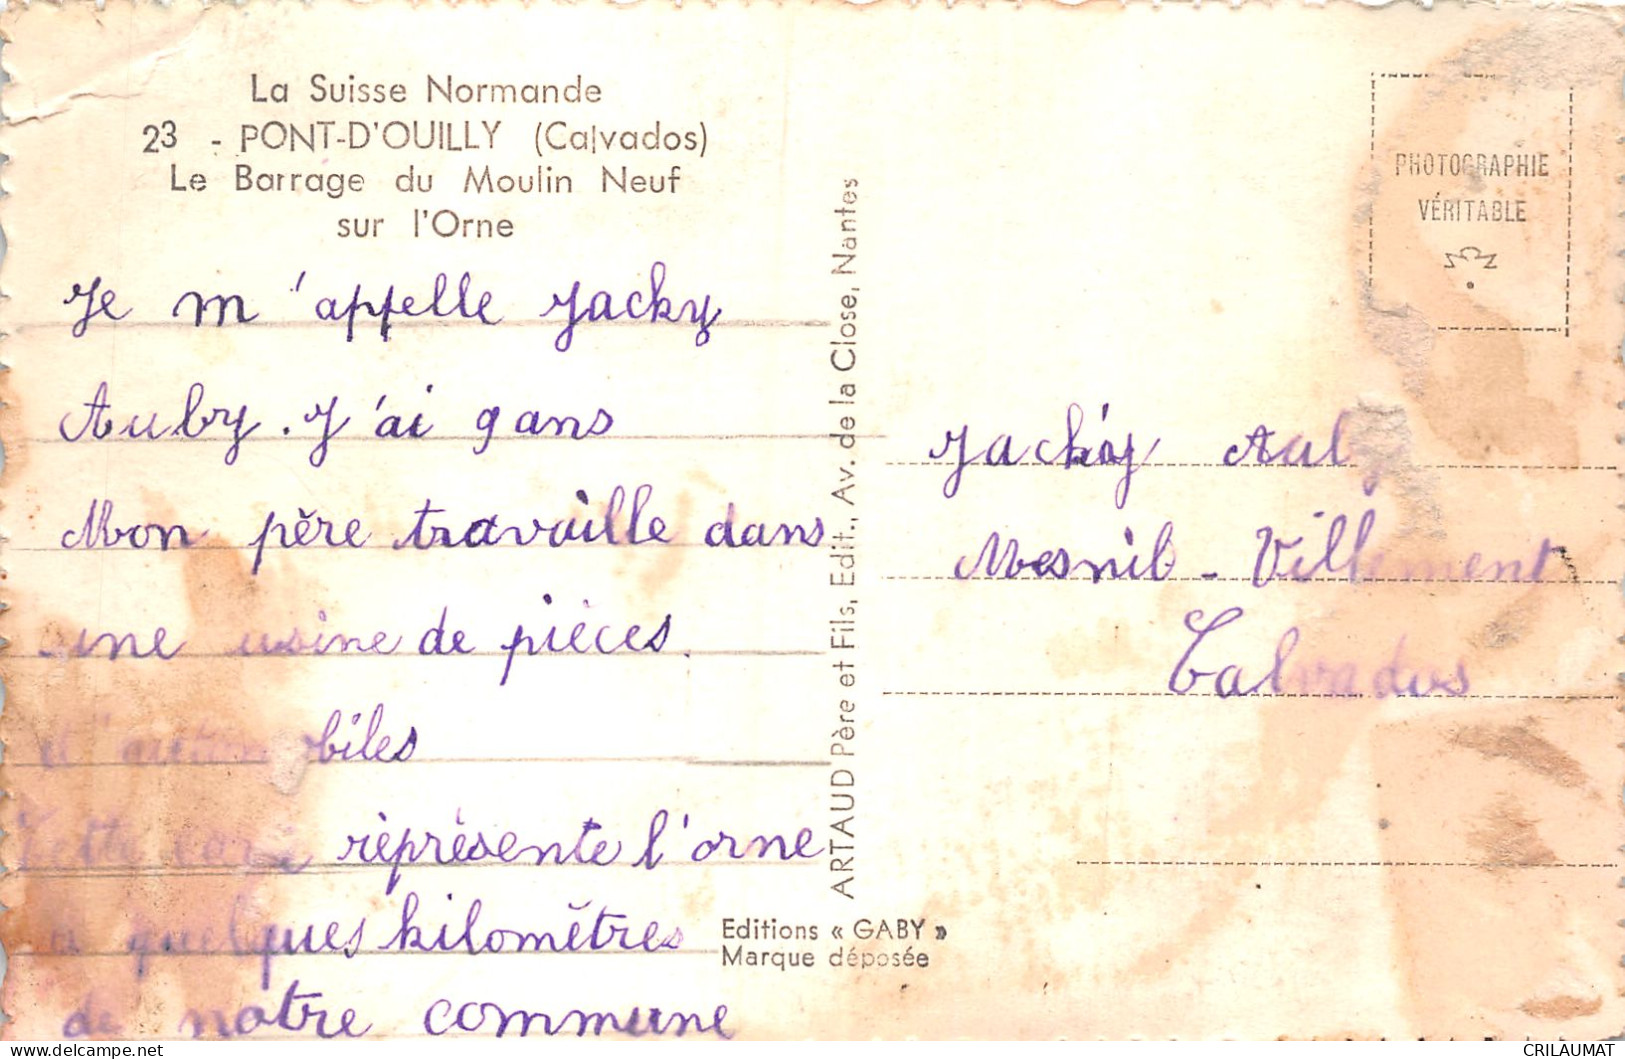 La Suisse Normande
23 - PONT-D'OUILLY (Calvados)
Le Barrage du Moulin Neuf
sur l'Orne
Je m'appelle Jacky
Auby. J'ai 9 ans
Mon père travaille dans
une usine de pièces.
d'automobiles
Cette représente l'orne
à quelques kilomètres
de notre commune
ARTAUD Père et Fils, Edit., Av. de la Close, Nantes
Editions « GABY »
Marque déposée
PHOTOGRAPHIE
VÉRITABLE
Jacky
Mesnil - Villement
Calvados
CRILAUMAT